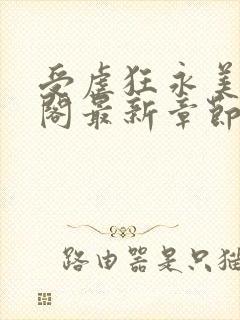 受虐狂永美
阁最新章节
路由器是只猫